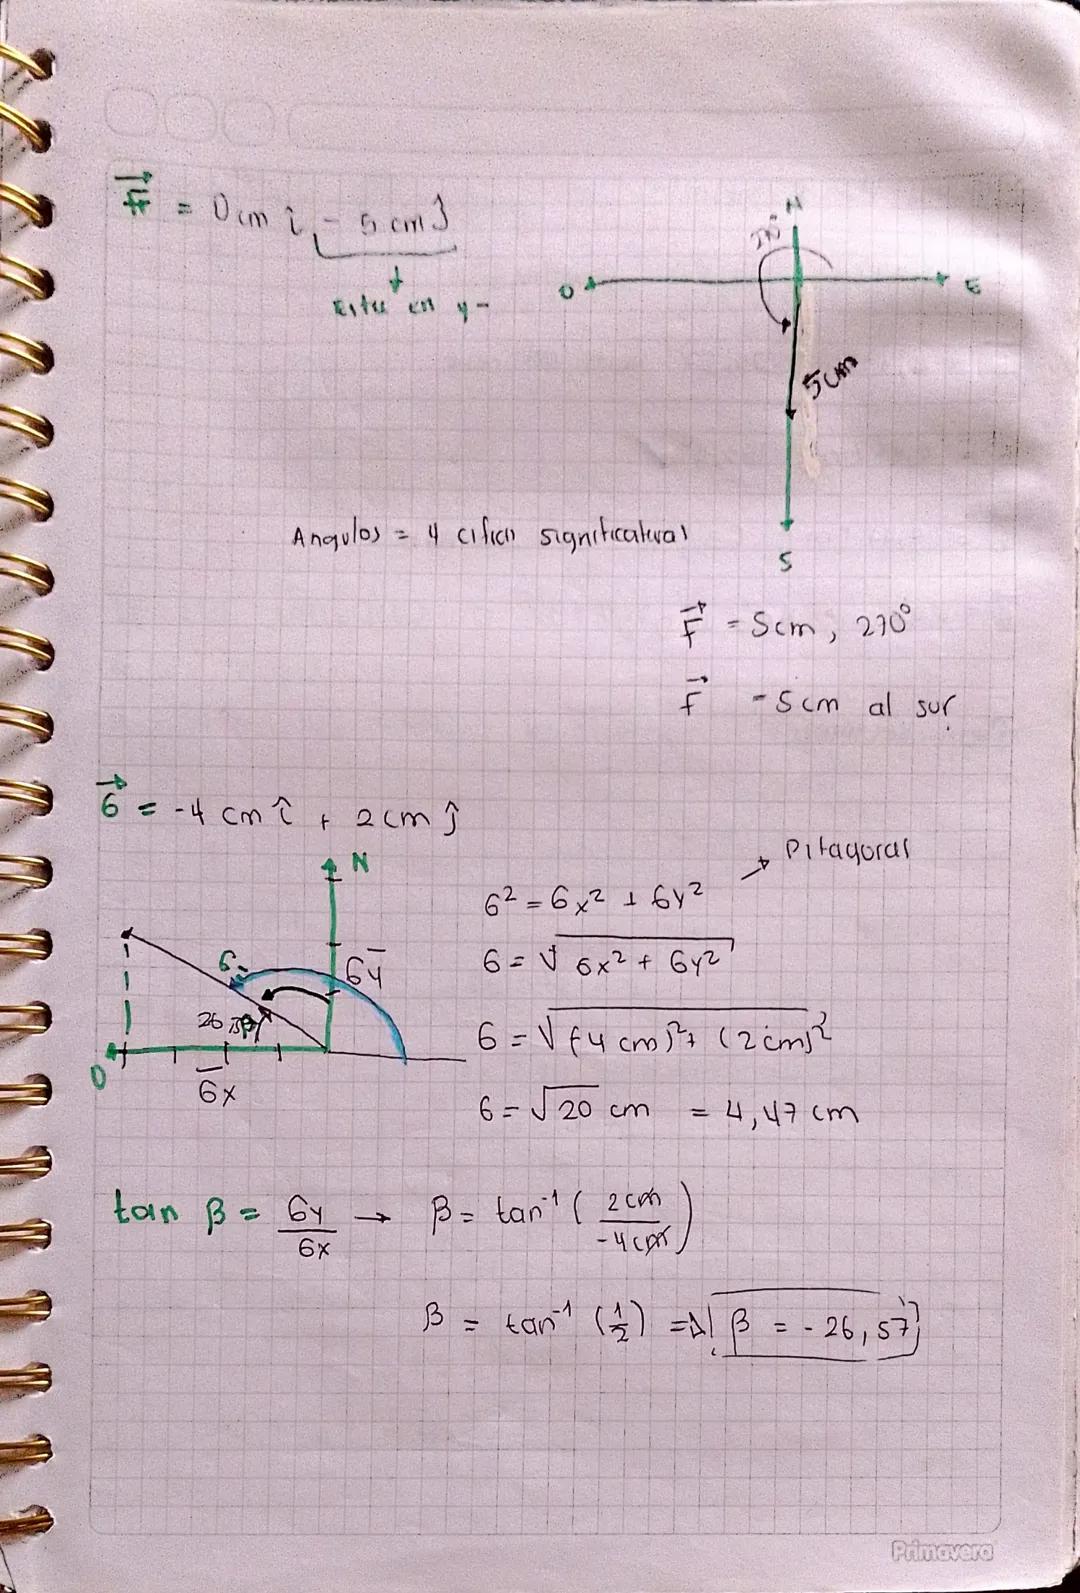 F = 0 cm î - 5 cm ĵ
Esta en y -
N
270°
O
E
5cm
S
Angulos = 4 cifras significativas
F = 5cm, 270°
F = 5cm al sur
G = -4 cm î + 2 cm ĵ
N
→ Pitagoras
G² = Gx² + Gy²
G
Gy
G = √Gx² + Gy²
26
β
G = √(-4 cm)² + (2 cm)²
O
Gx
G = √20 cm = 4,47 cm
tan β = Gy/Gx → β = tan⁻¹ (2 cm/-4 cm)
β = tan⁻¹ (1/2) = β = - 26,57
Primavera